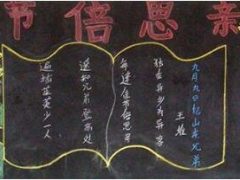 节倍思亲
九月九日忆山东兄弟
王维
独在异乡为异客
每逢佳节倍思亲
遥知兄弟登高处
遍插茱萸少一人